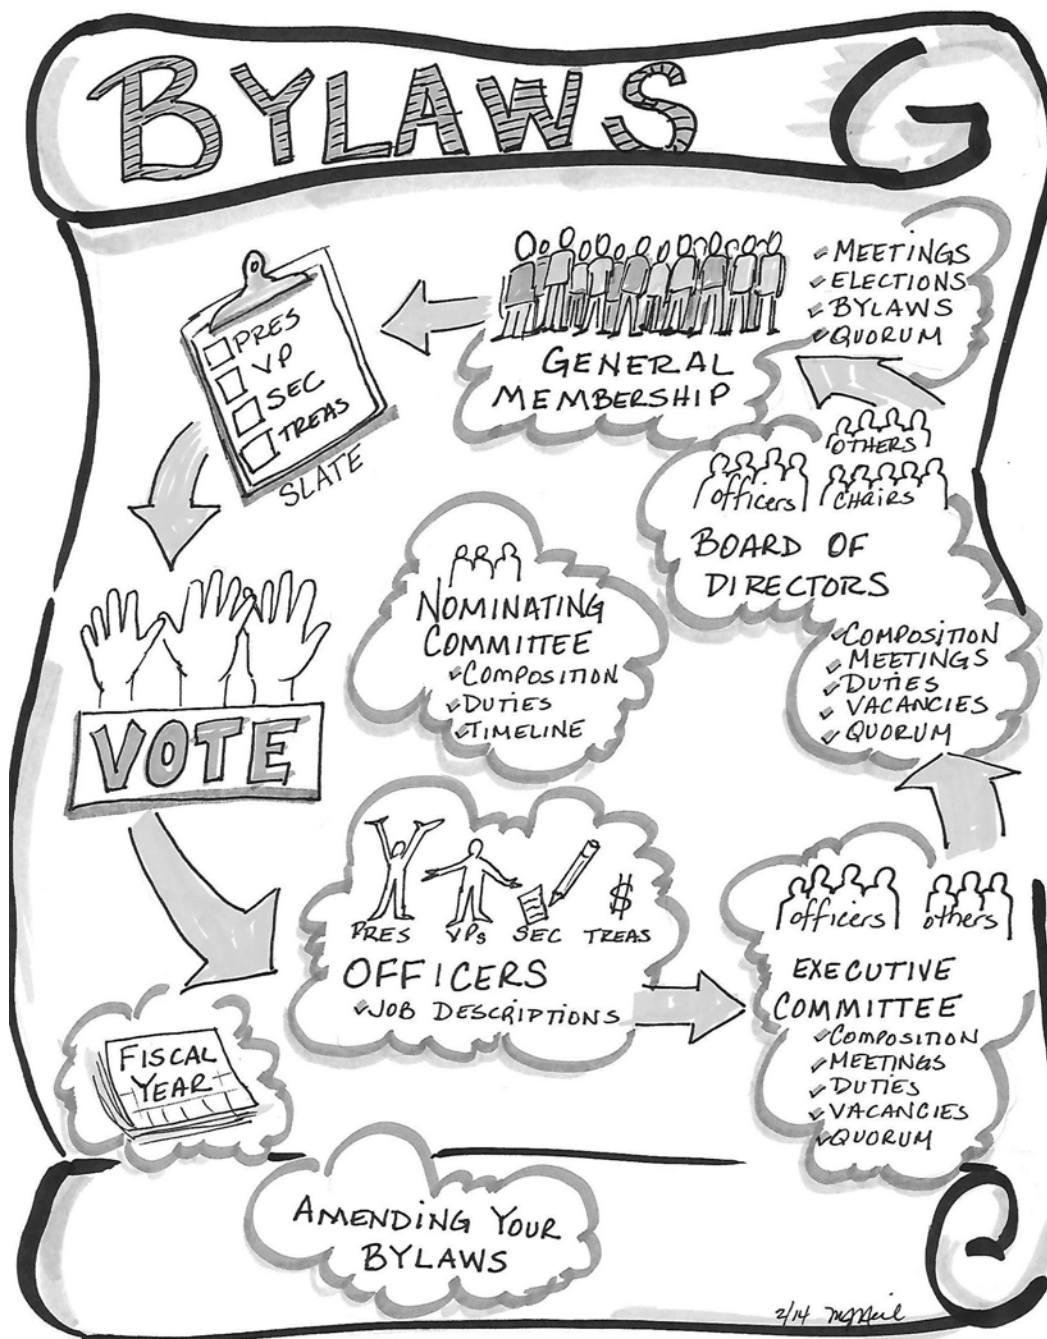 BYLAWS
MEETINGS
ELECTIONS
BYLAWS
QUORUM
GENERAL
MEMBERSHIP
PRES
VP
SEC
TREAS
SLATE
OTHERS
officers
CHAIRS
BOARD OF
DIRECTORS
COMPOSITION
MEETINGS
DUTIES
VACANCIES
QUORUM
NOMINATING
COMMITTEE
COMPOSITION
DUTIES
TIMELINE
VOTE
PRES VPs SEC $ TREAS
OFFICERS
JOB DESCRIPTIONS
officers others
EXECUTIVE
COMMITTEE
COMPOSITION
MEETINGS
DUTIES
VACANCIES
QUORUM
FISCAL
YEAR
AMENDING YOUR
BYLAWS
2/14